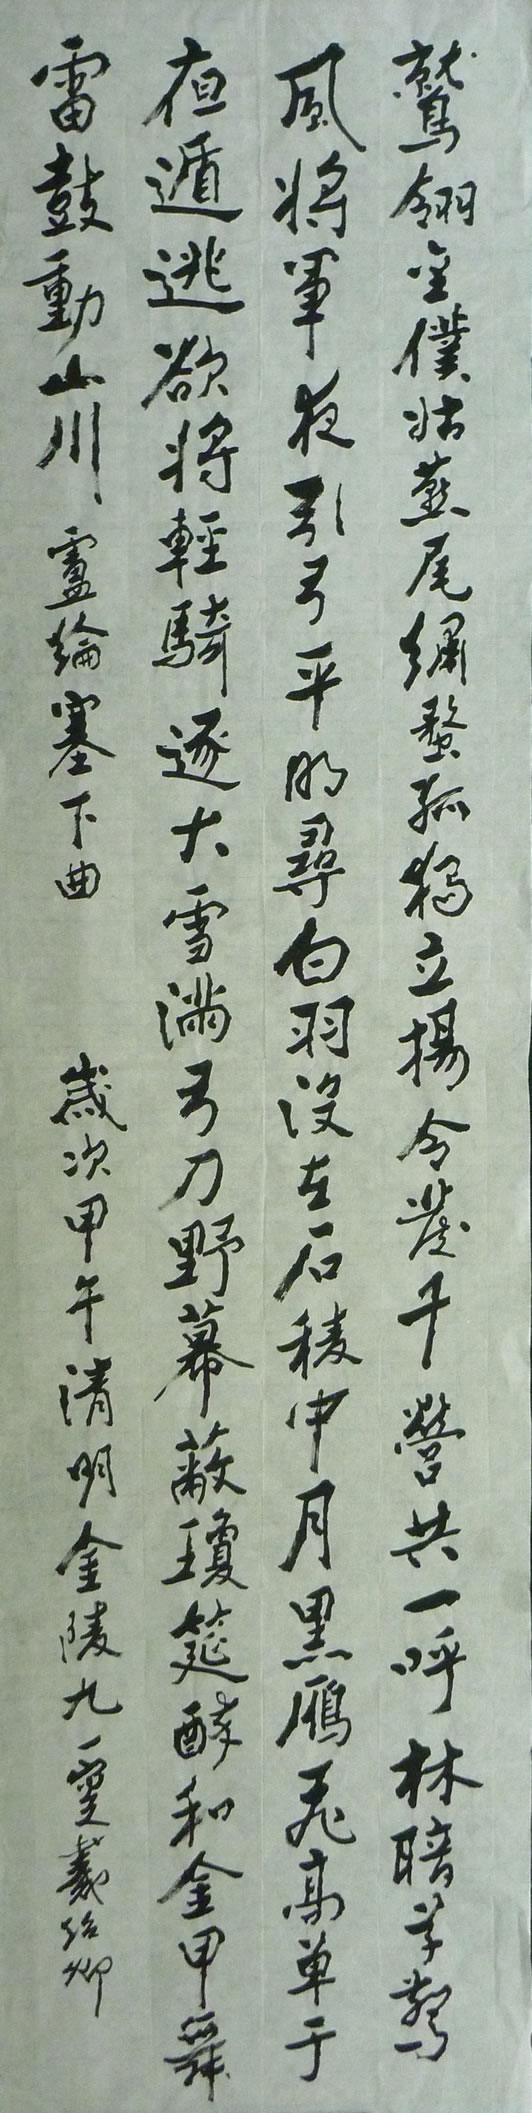 鷲翎金僕姑燕尾繡蝥孤獨立揚令發千營共一呼林暗草驚
風將軍夜引弓平明尋白羽沒在石稜中月黑雁飛高單于
夜遁逃欲將輕騎逐大雪滿弓刀野幕蔽瓊筵醉和金甲舞
雷鼓動山川 盧綸塞下曲 歲次甲午清明金陵九